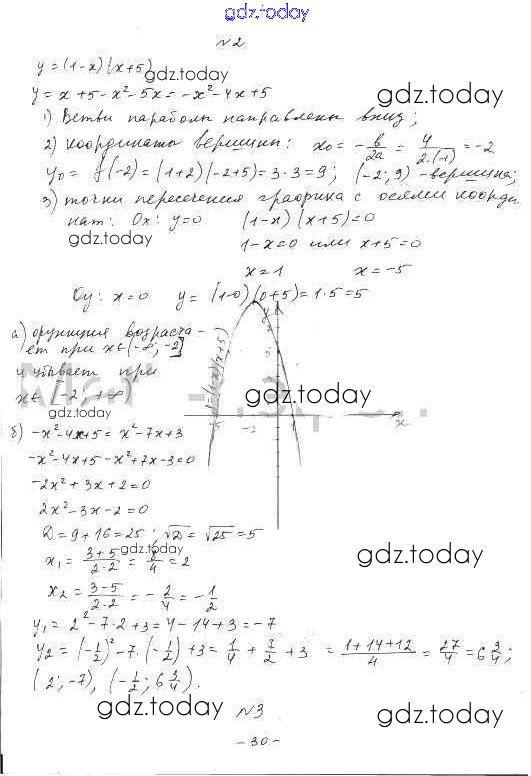 gdz.today
№2
y = (1-x)(x+5)
gdz.today
y = x+5-x²-5x = -x²-4x+5
gdz.today
1) Ветви параболы направлены вниз;
2) координаты вершины: x₀ = -b/2a = 4/2·(-1) = -2
y₀ = f(-2) = (1+2)(-2+5) = 3·3 = 9; (-2; 9) - вершина;
3) точки пересечения графика с осями коорди-
нат: Ox: y=0 (1-x)(x+5)=0
gdz.today
gdz.today
1-x=0 или x+5=0
x=1 x=-5
Oy: x=0 y=(1-0)(0+5)=1·5=5
а) функция возраста-
ет при x∈(-∞; -2]
и убывает при
x∈ -2; +∞)
gdz.today
gdz.today
y
9
5
y=(1-x)(x+5)
-5
-2
x
б) -x²-4x+5 = x²-7x+3
-x²-4x+5-x²+7x-3=0
-2x²+3x+2=0
2x²-3x-2=0
D=9+16=25; √D=√25=5
x₁ = 3+5/2·2 = 8/4 = 2
gdz.today
gdz.today
x₂ = 3-5/2·2 = -2/4 = -1/2
y₁ = 2²-7·2+3 = 4-14+3 = -7
y₂ = (-1/2)²-7·(-1/2)+3 = 1/4+7/2+3 = 1+14+12/4 = 27/4 = 6 3/4;
(2; -7), (-1/2; 6 3/4).
gdz.today
№3
gdz.today
- 30 -